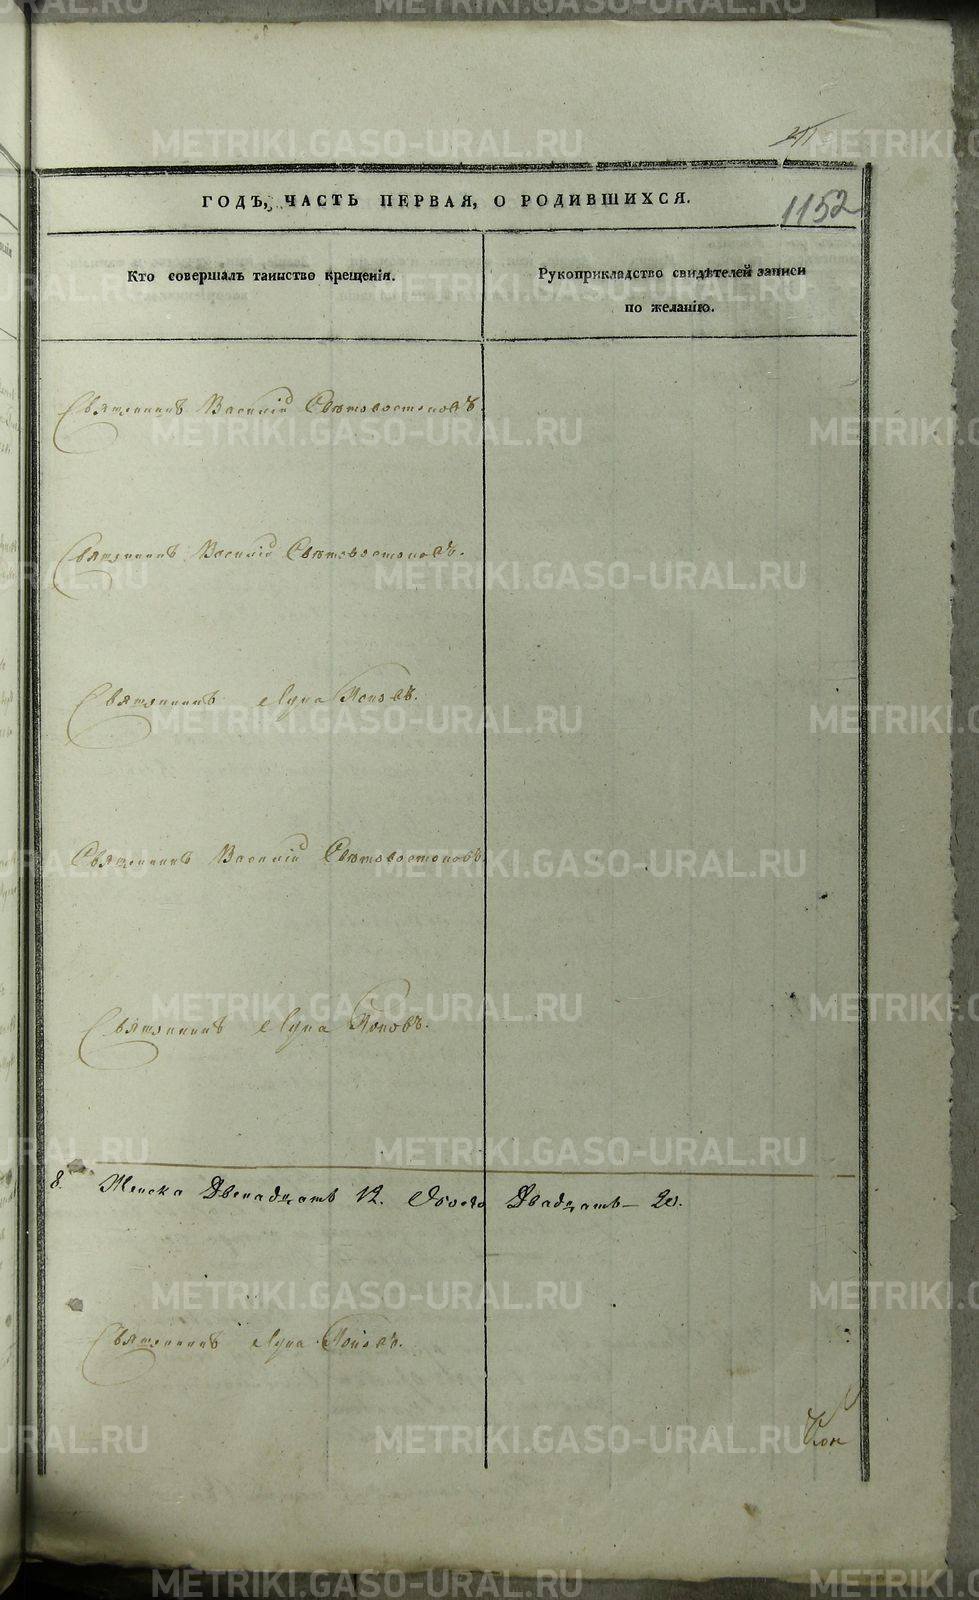 1152
ГОДЪ, ЧАСТЬ ПЕРВАЯ, О РОДИВШИХСЯ.
Кто совершалъ таинство крещенія.
Рукоприкладство свидѣтелей записи
по желанію.
Священникъ Василій Свѣтовостоковъ.
Священникъ Василій Свѣтовостоковъ.
Священникъ Лука Поповъ.
Священникъ Василій Свѣтовостоковъ.
Священникъ Лука Поповъ.
8. Женска Двенадцать 12. Обоего Двадцать – 20.
Священникъ Лука Поповъ.
METRIKI.GASO-URAL.RU